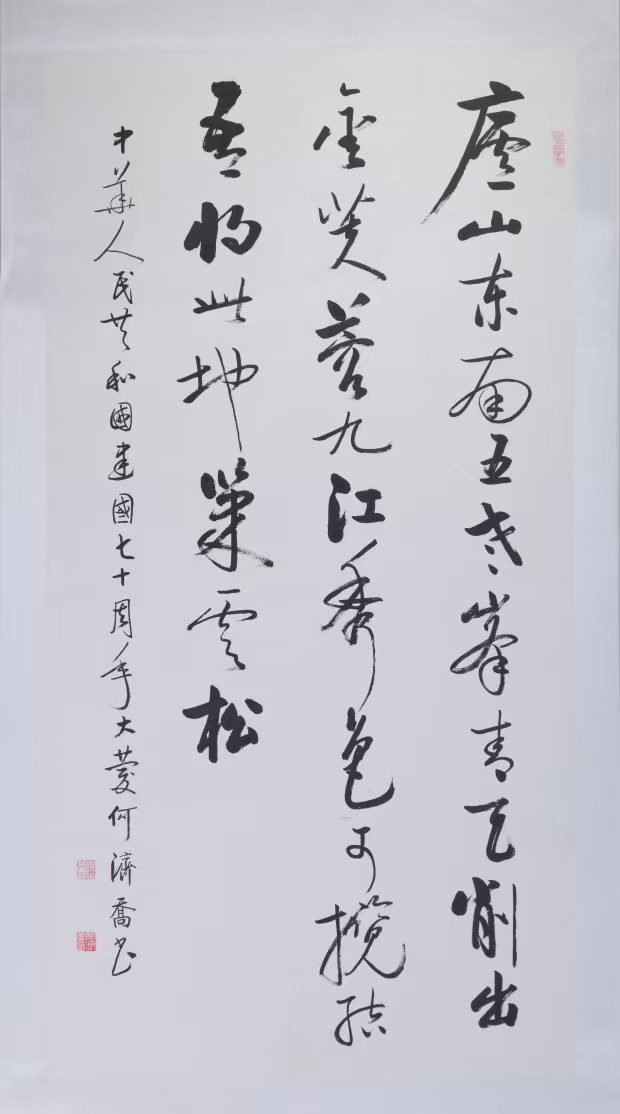 庐山东南五老峰青天削出
金芙蓉九江秀色可揽结
吾将此地巢云松
中华人民共和國建國七十周年大慶何濟喬书